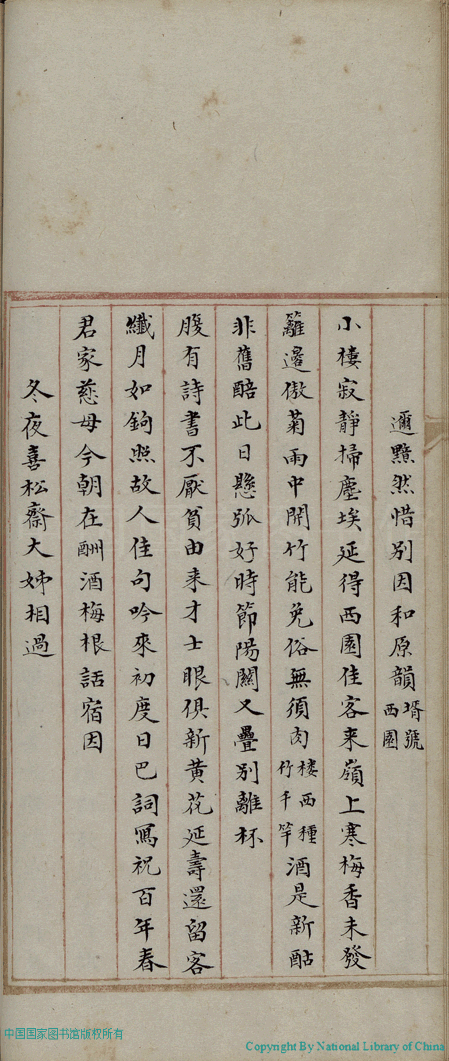 邇黯然惜別因和原韻壻號西園
小棲寂靜掃塵埃延得西園佳客来嶺上寒梅香未發
籬邊傲菊雨中開竹能免俗無須肉楼西種竹千竿酒是新酤
非舊醅此日懸弧好時節陽關又疊別離杯
腹有詩書不厭貧由来才士眼俱新黄花延壽還留客
纖月如鉤照故人佳句吟來初度日巴詞寫祝百年春
君家慈母今朝在酬酒梅根話宿因
冬夜喜松齋大姊相過
中国国家图书馆版权所有
Copyright By National Library of China